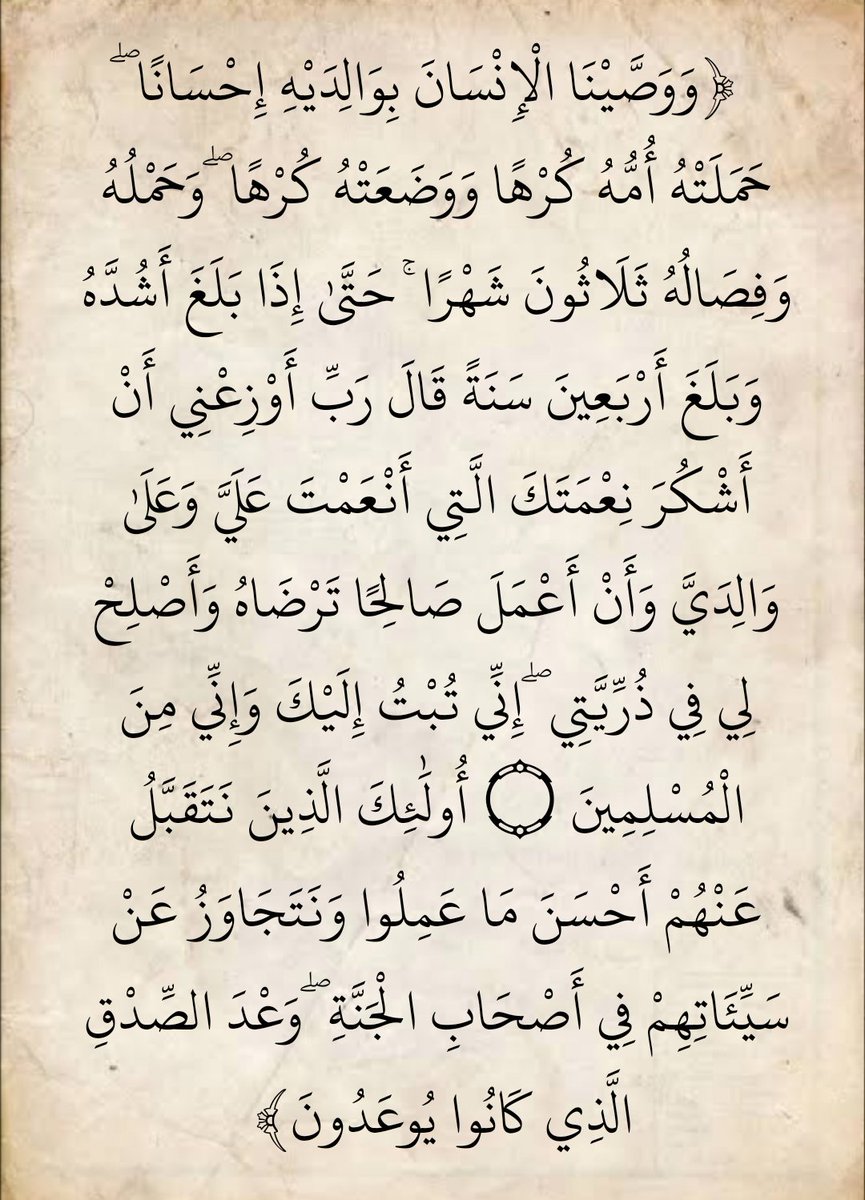 ﴿وَوَصَّيْنَا الْإِنْسَانَ بِوَالِدَيْهِ إِحْسَانًا ۖ
حَمَلَتْهُ أُمُّهُ كُرْهًا وَوَضَعَتْهُ كُرْهًا ۖ وَحَمْلُهُ
وَفِصَالُهُ ثَلَاثُونَ شَهْرًا ۚ حَتَّىٰ إِذَا بَلَغَ أَشُدَّهُ
وَبَلَغَ أَرْبَعِينَ سَنَةً قَالَ رَبِّ أَوْزِعْنِي أَنْ
أَشْكُرَ نِعْمَتَكَ الَّتِي أَنْعَمْتَ عَلَيَّ وَعَلَىٰ
وَالِدَيَّ وَأَنْ أَعْمَلَ صَالِحًا تَرْضَاهُ وَأَصْلِحْ
لِي فِي ذُرِّيَّتِي ۖ إِنِّي تُبْتُ إِلَيْكَ وَإِنِّي مِنَ
الْمُسْلِمِينَ ۝ أُولَٰئِكَ الَّذِينَ نَتَقَبَّلُ
عَنْهُمْ أَحْسَنَ مَا عَمِلُوا وَنَتَجَاوَزُ عَنْ
سَيِّئَاتِهِمْ فِي أَصْحَابِ الْجَنَّةِ ۖ وَعْدَ الصِّدْقِ
الَّذِي كَانُوا يُوعَدُونَ﴾